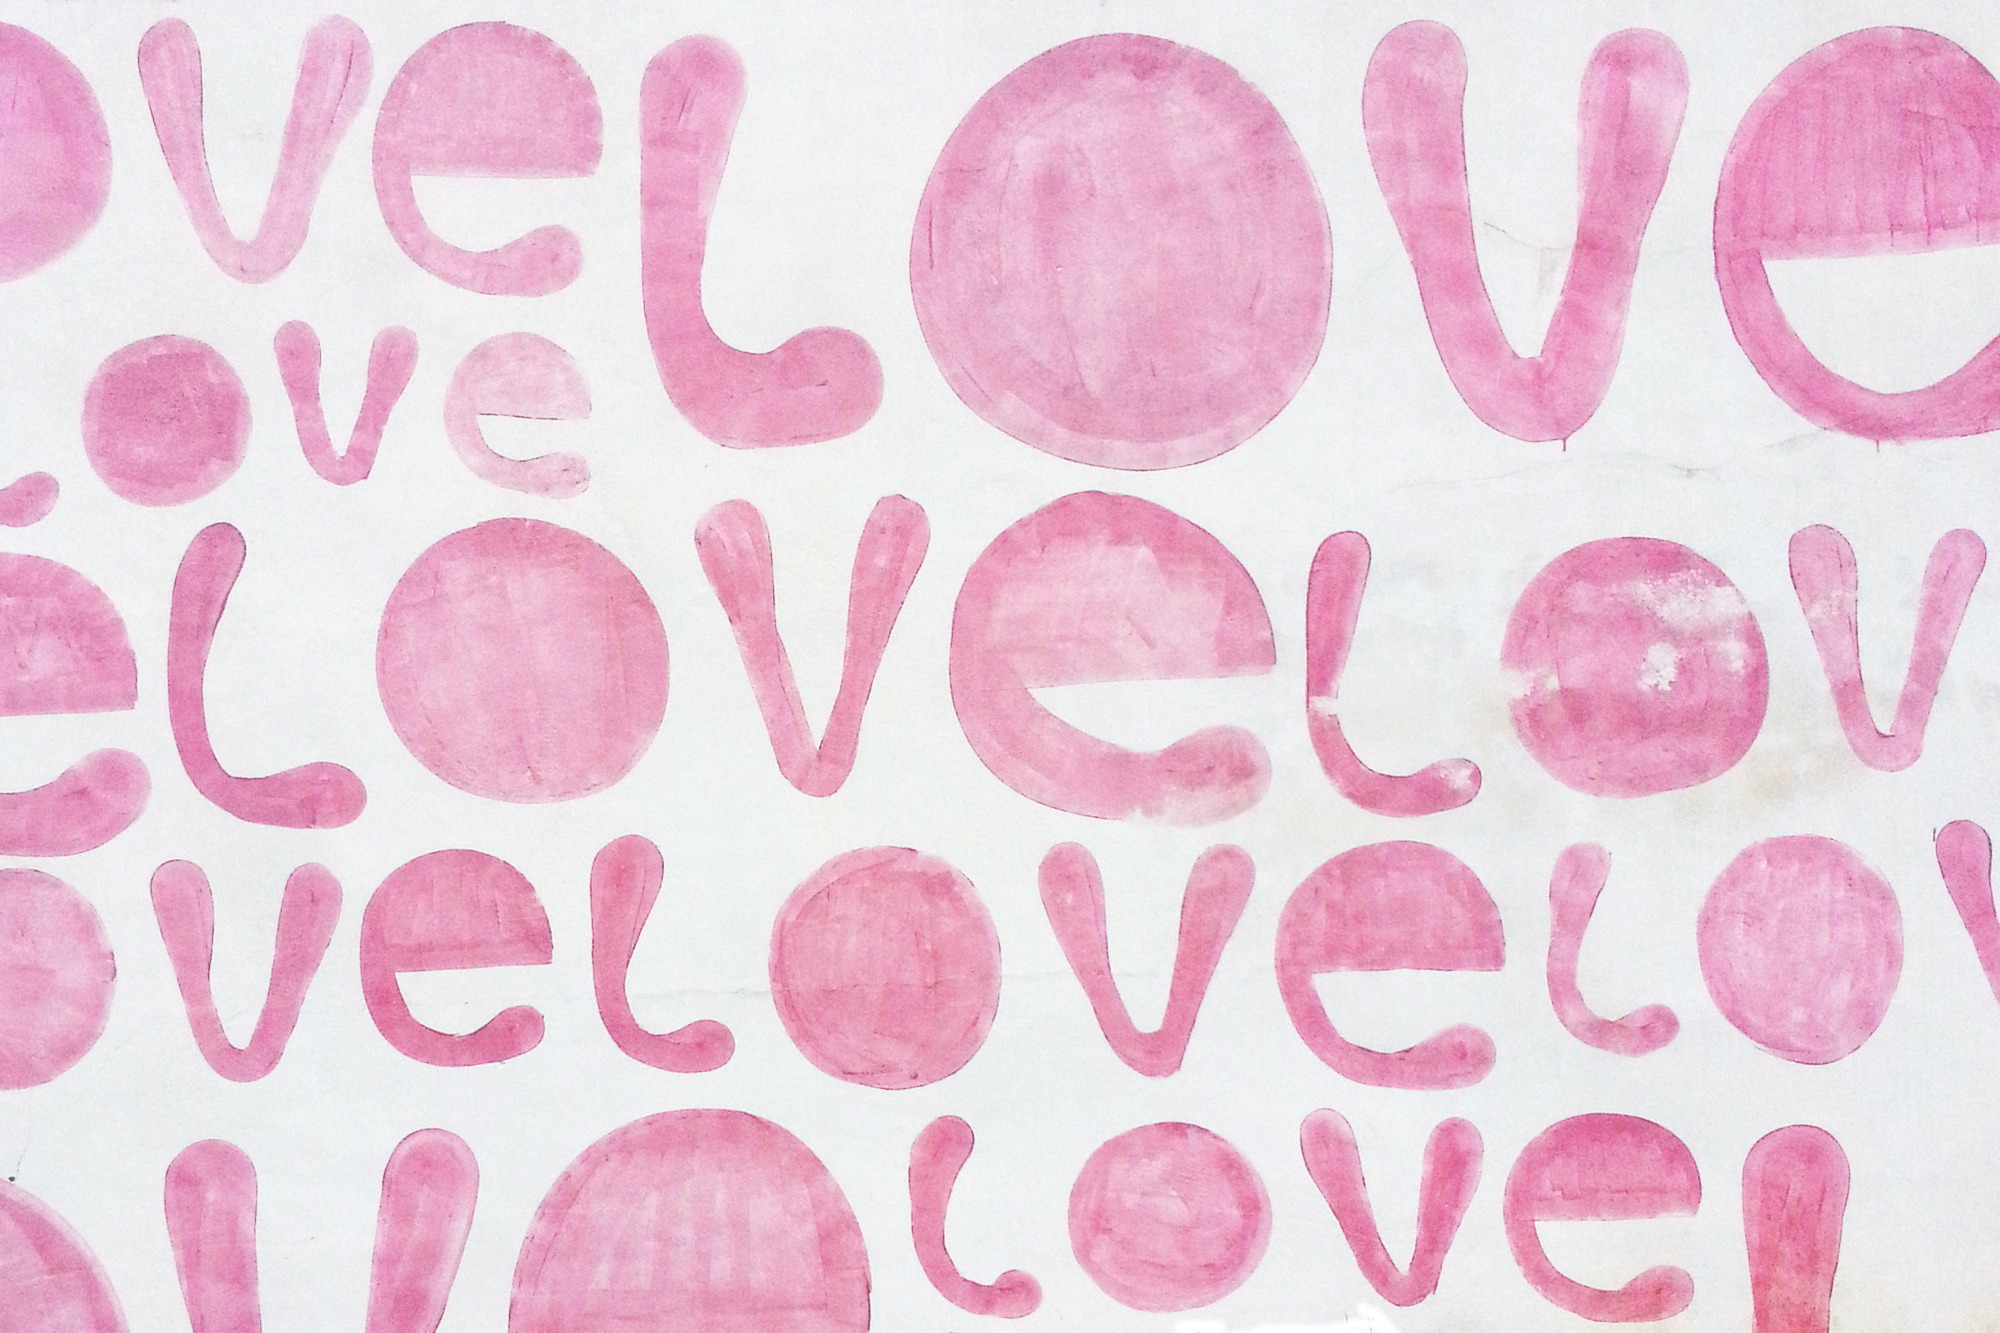 ove love
love
e love lov
ove love lov
ove love l